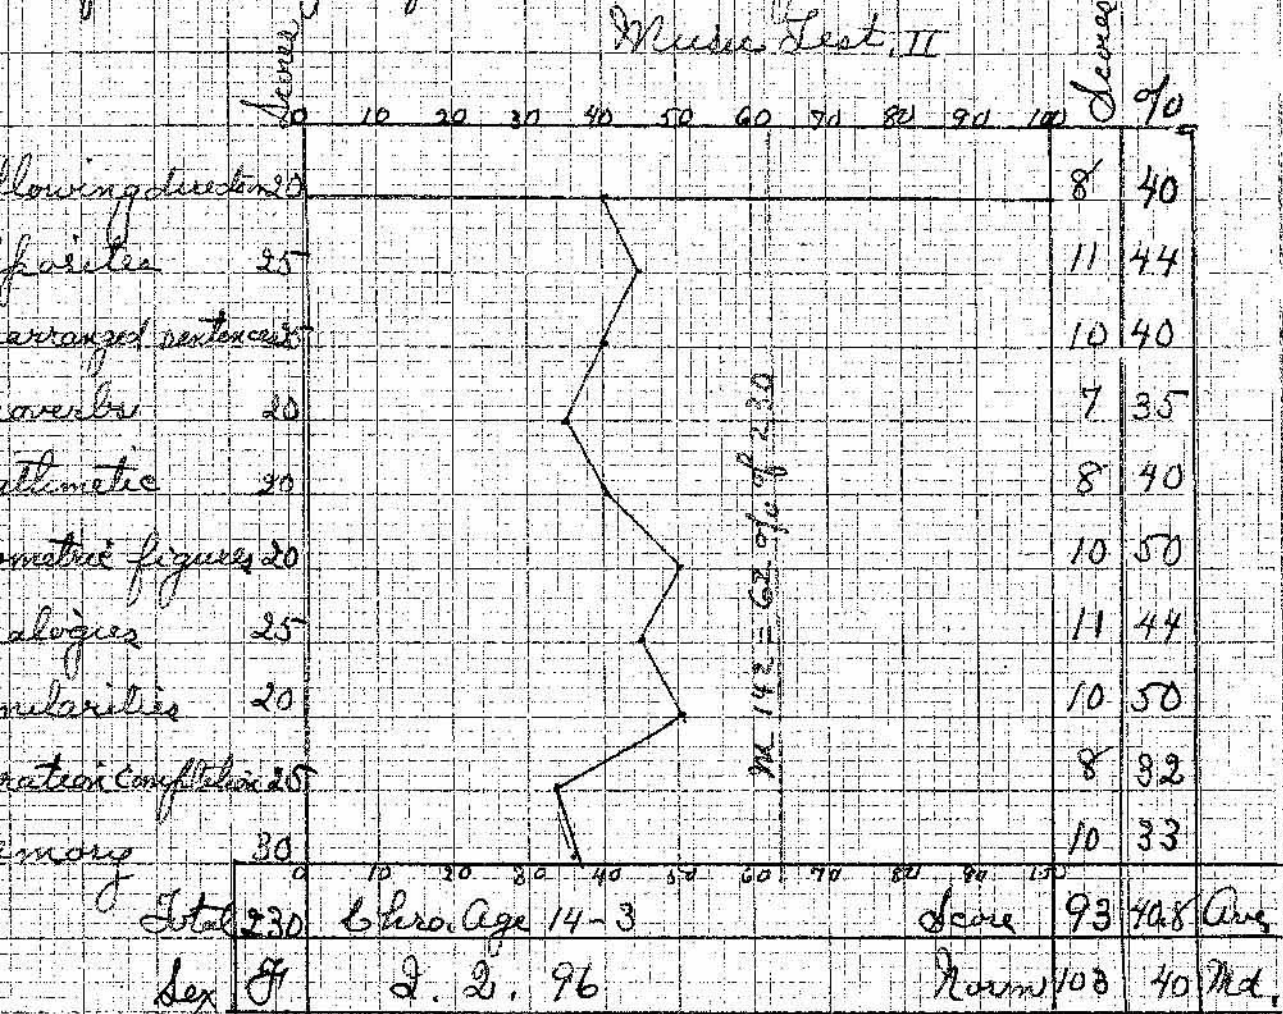 Music Test, II
Scores 0 10 20 30 40 50 60 70 80 90 100 Scores %
llowing direction 20 8 40
posites 25 11 44
arranged sentences 25 10 40
overbs 20 7 35
athmetic 20 8 40
ometric figures 20 10 50
alogies 25 11 44
milarities 20 10 50
ration completion 25 8 32
emory 30 10 33
M 142 = 62 % of 230
0 10 20 30 40 50 60 70 80 90 100
Total 230 Chro. Age 14-3 Score 93 40.8 Ave.
Sex F I. Q. 96 Norm 103 40 Md.